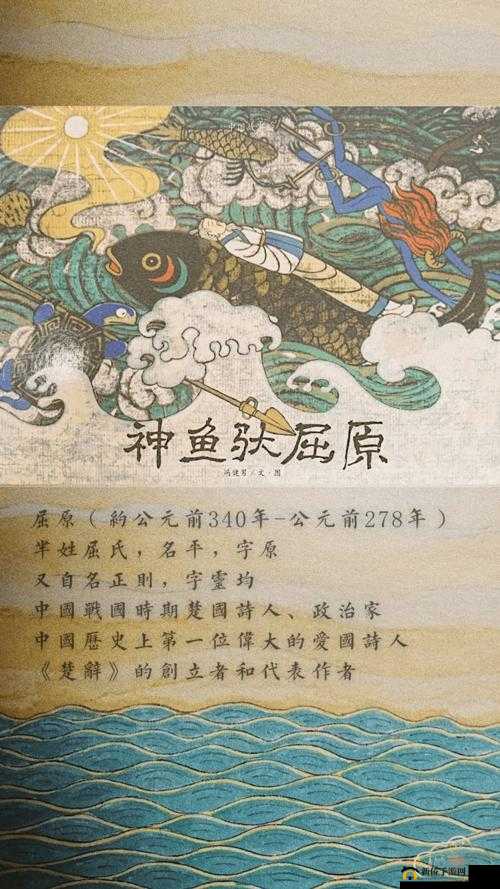 神鱼驮屈原
冯健男/文·图
屈原(約公元前340年-公元前278年)
芈姓屈氏,名平,字原
又自名正則,字靈均
中國戰國時期楚國詩人、政治家
中國歷史上第一位偉大的愛國詩人
《楚辭》的創立者和代表作者
新侨手游网